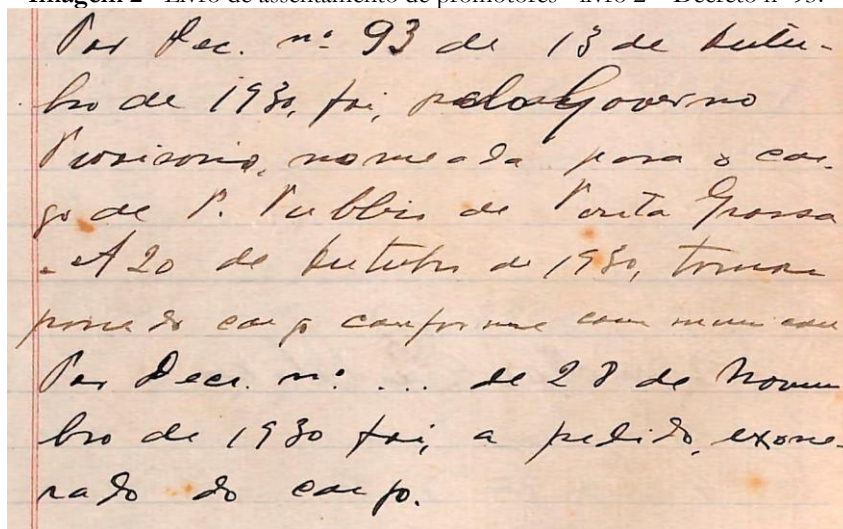 Imagem 2 - Livro de assentamento de promotores - livro 2 - Decreto nº 93.
Por Dec. nº 93 de 13 de Outu-
bro de 1930, foi, pelo Governo
Provisorio, nomeada para o car-
go de P. Publico de Ponta Grossa
- A 20 de Outubro de 1930, tomou
posse do cargo conforme communicou
Por Decr. nº ... de 28 de Novem
bro de 1930 foi, a pedido, exone-
rado do cargo.